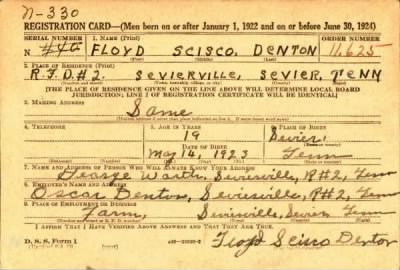 N-330
REGISTRATION CARD—(Men born on or after January 1, 1922 and on or before June 30, 1924)
SERIAL NUMBER 1. NAME (Print) ORDER NUMBER
N FLOYD SCISCO DENTON 11,625
2. PLACE OF RESIDENCE (Print)
R.F.D #2. SEVIERVILLE, SEVIER, TENN
[THE PLACE OF RESIDENCE GIVEN ON THE LINE ABOVE WILL DETERMINE LOCAL BOARD
JURISDICTION; LINE 2 OF REGISTRATION CERTIFICATE WILL BE IDENTICAL]
3. MAILING ADDRESS
Same
4. TELEPHONE 5. AGE IN YEARS 6. PLACE OF BIRTH
19 Sevier
DATE OF BIRTH
May 14, 1923 Tenn
7. NAME AND ADDRESS OF PERSON WHO WILL ALWAYS KNOW YOUR ADDRESS
George Sevierville, R#2, Tenn
8. EMPLOYER'S NAME AND ADDRESS
Oscar Denton, Sevierville, R#2, Tenn
9. PLACE OF EMPLOYMENT OR BUSINESS
Farm, Sevierville, Sevier Tenn
I AFFIRM THAT I HAVE VERIFIED ABOVE ANSWERS AND THAT THEY ARE TRUE.
D. S. S. Form 1 Floyd Scisco Denton